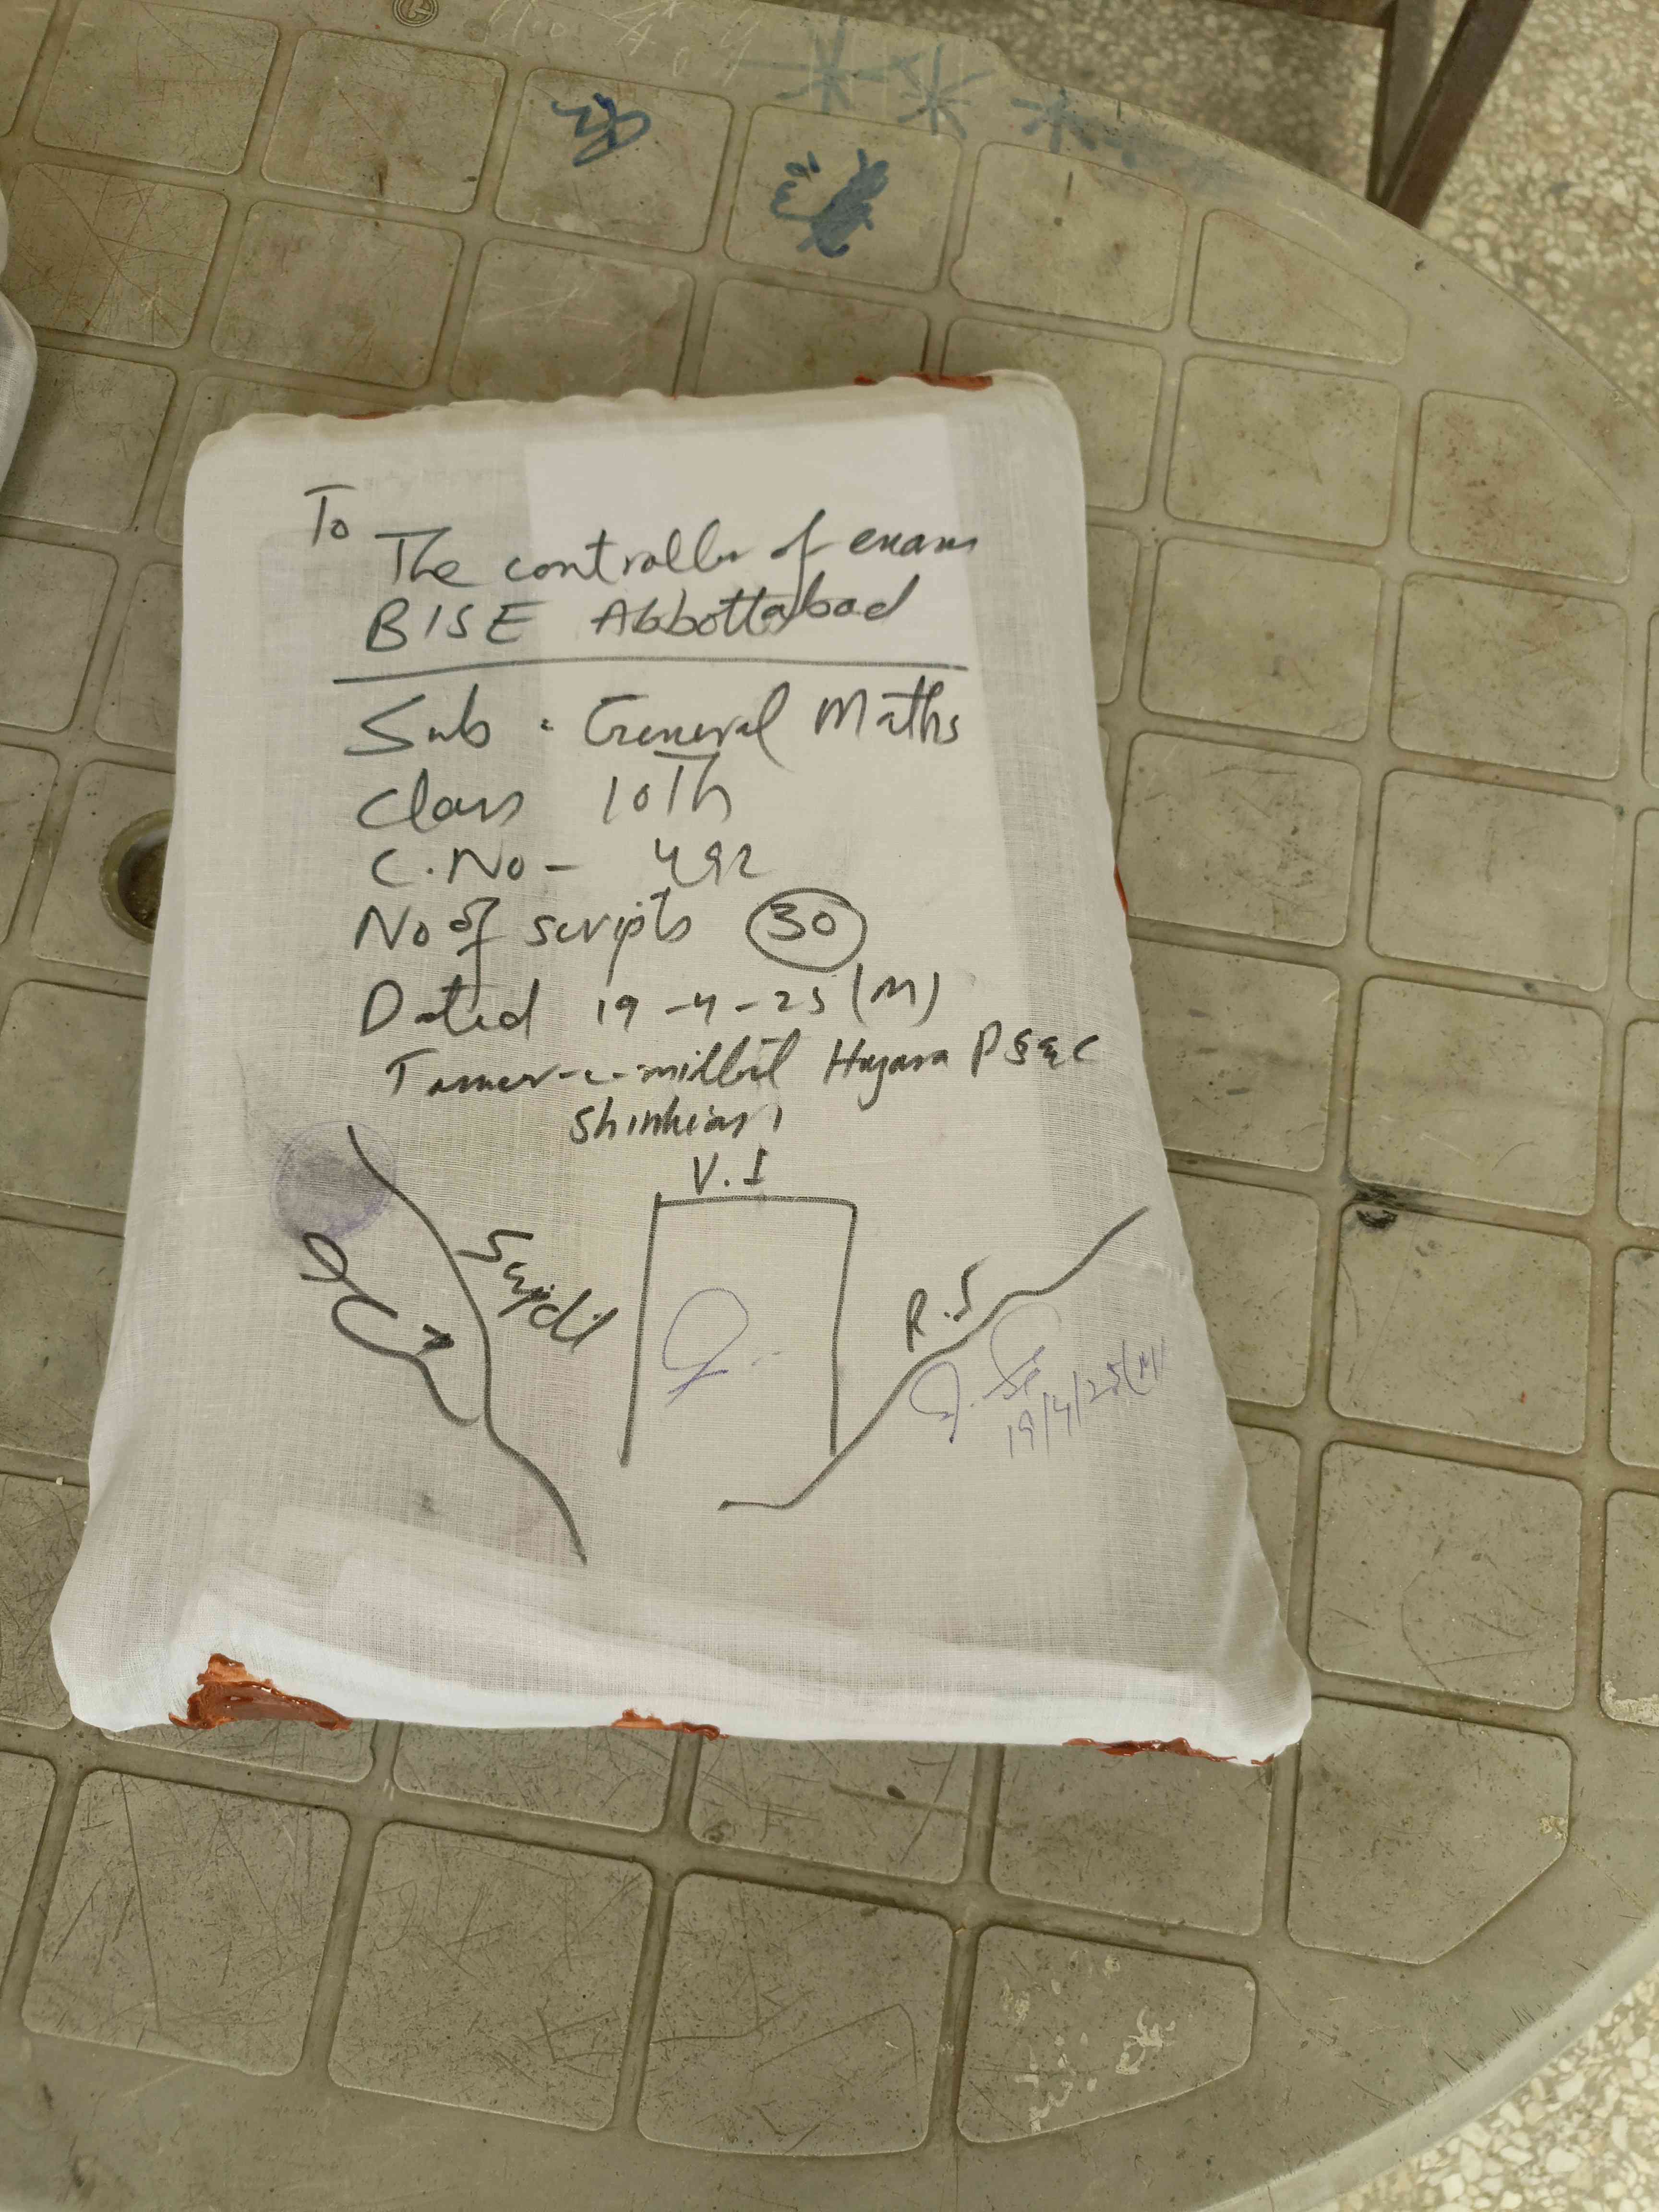 To
The controller of exams
BISE Abbottabad
Sub. General Maths
Class 10Th
C.No - 492
No of scripts 30
Dated 19-4-25 (M)
Tameer-e-millat Hazara PS & C
Shinkiari
V.I
Supdt
R.S
19/4/25(M)